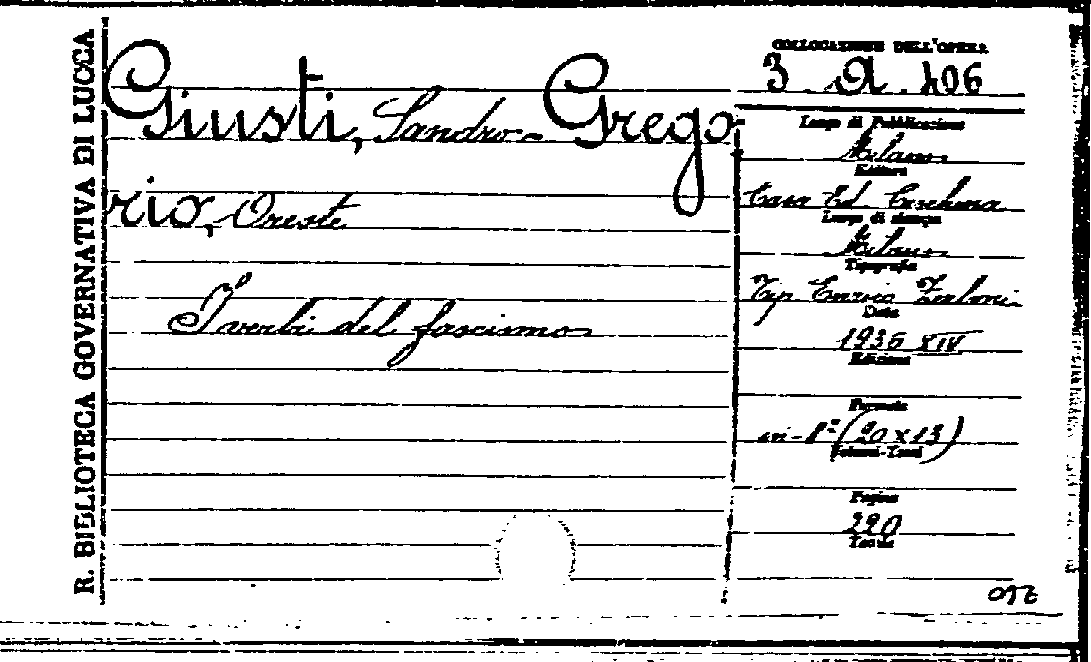 R. BIBLIOTECA GOVERNATIVA DI LUCCA
Giusti, Sandro - Grego-
rio, Oreste
I verbi del fascismo
COLLOCAZIONE DELL'OPERA
3. A. 406
Luogo di Pubblicazione
Milano
Editore
Casa Ed. Ceschina
Luogo di stampa
Milano
Tipografia
Tip Enrico Zerboni
Data
1936 XIV
Edizione
Formato
in-8º (20 x 13)
Volumi-Tomi
Pagine
220
Tavole